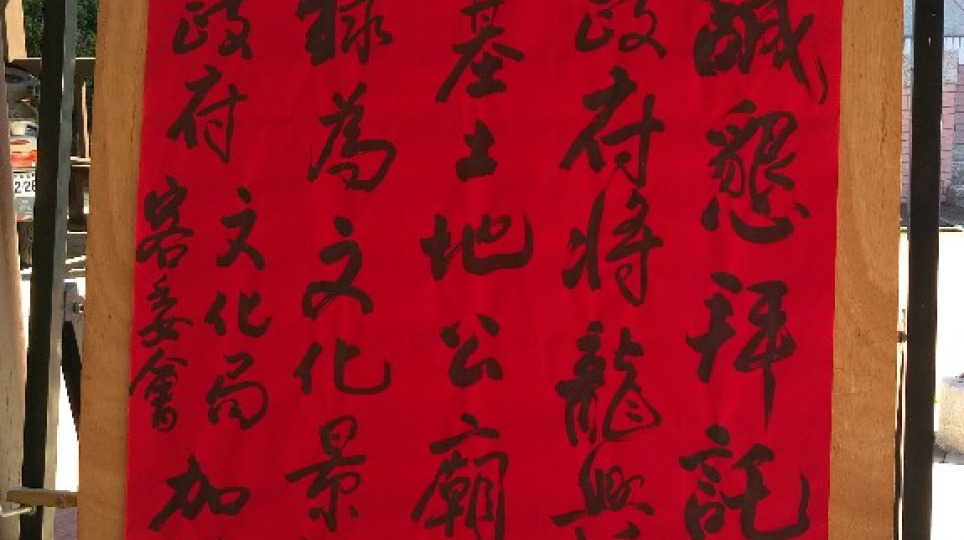 誠懇拜託
政府將龍興
基土地公廟
錄為文化景
政府
文化局
客委會
加